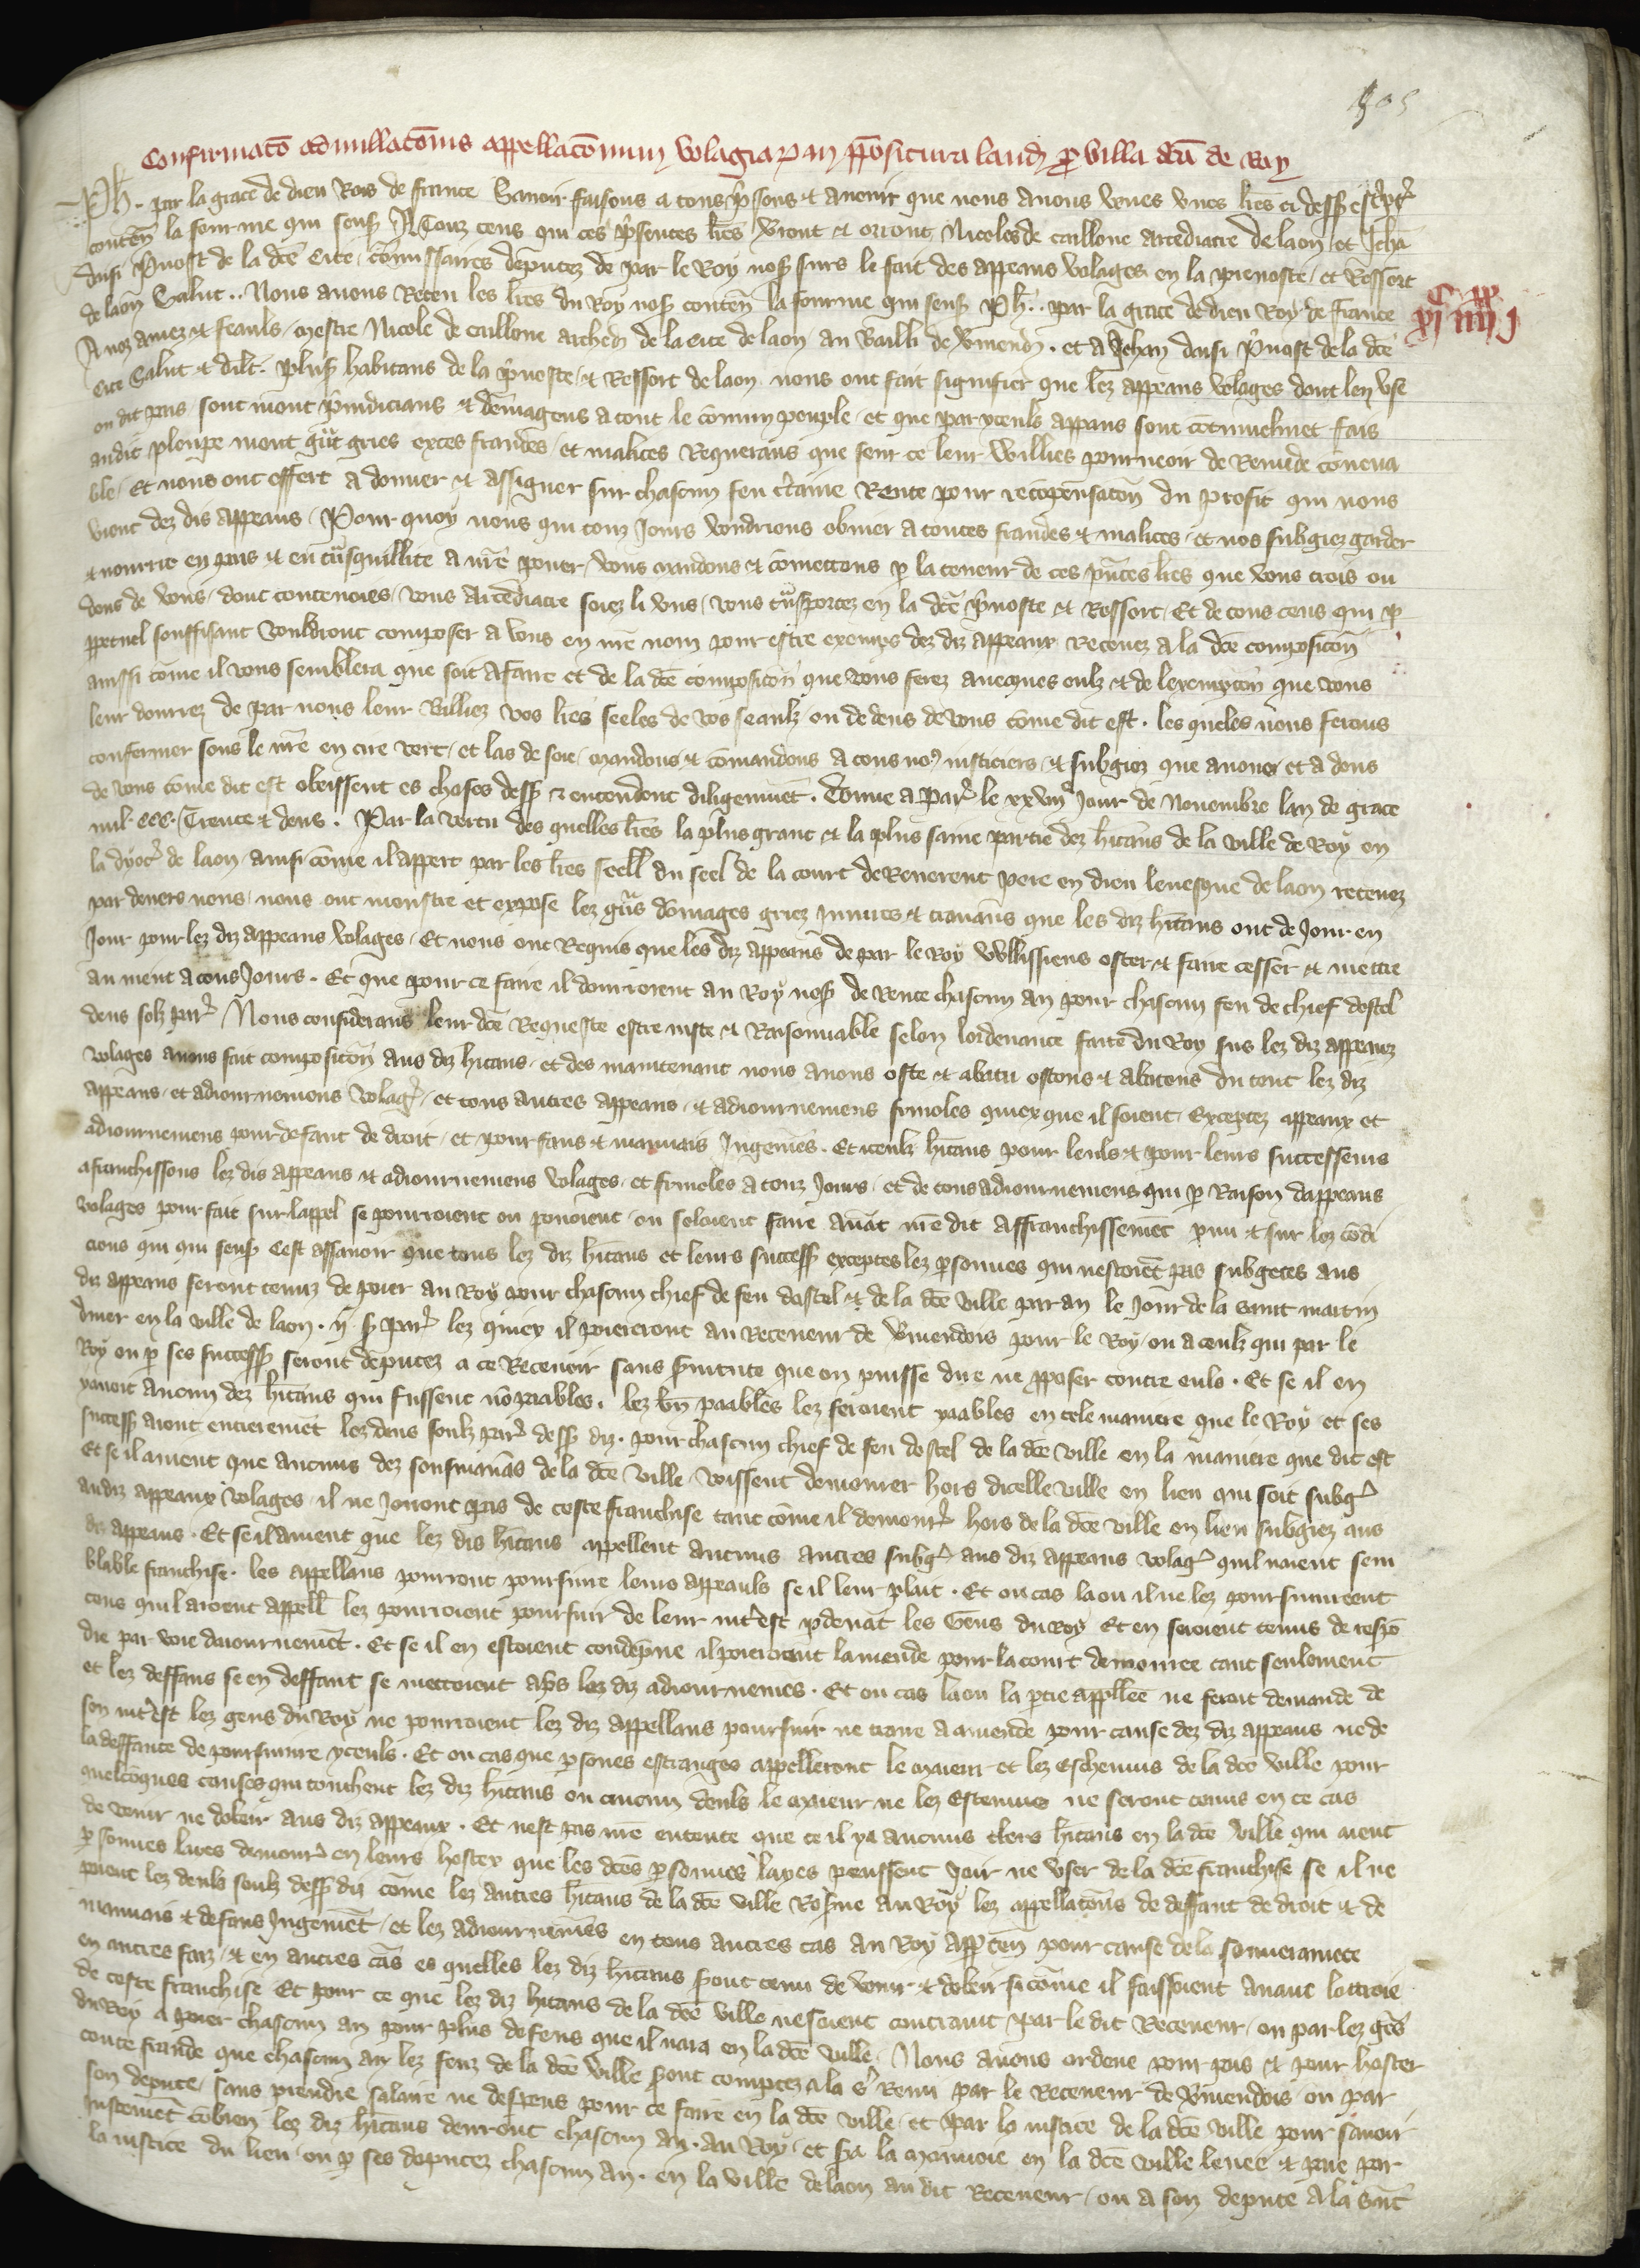 505
Confirmacō adnullacōnis appellacōnum volagiaꝝ in p̄positura laud̄ ꝓ villa dc̄a de Roy
Ph̄. par la grace de dieu Rois de france Sauoir faisons a tous p̄sens et auenir que nous auons veues vnes lr̄es ci dess9 esc̄ptes
conten̄ la fourme qui sensuit A Touz ceus qui ces p̄sentes lr̄es verront et orront Nicoles de caillone arcediacre de laon et Jehā
daisi p̄uost de la dc̄e cite cōmissaires deputez de par le Roy nos̄ seurs le fait des appeaus volages en la preuoste et Ressort
de laon Salut.. Nous auons Receu les lr̄es du Roy nos̄ conten̄ la fourme qui sensuit Ph̄.. par la grace de dieu Roy de france
A noz amez et feauls mestre Nicole de caillone arched̄ de la cite de laon au bailli de v̄mend̄. et a Jehan daisi p̄uost de la dc̄e
Cite Salut et dilt̄. plus̄ habitans de la p̄uoste et Ressort de laon nous ont fait signifier que lez appeaus volages dont len vse
ou dit pais sont mout p̄iudicians et dōmageus a tout le cōmun peuple et que par yceuls appeaus sont cōtinuelmēt fais
audit pleupe mout gr̄nt gries exces fraudes et malices Requerans que seur ce leur willies pourueoir de Remide cōuena
ble Et nous ont offert a donner et assigner sur chascun feu c̄taine Rente pour recōpensacōn du profit qui nous
vient dez dis appeaus Pour quoy nous qui touz Jours voudrions obuier a toutes fraudes et malices et nos subgiez garder
et nourrir en pais et en trāsquillite a nr̄e pouer vous mandons et cōmettons ꝑ la teneur de ces p̄ntes lr̄es que vous trois ou
deus de vous dont toutevoies vous arcediacre soiez li vns vous trāsportez en la dc̄e p̄uoste et Ressort Et de tous ceus qui ꝑ
ꝑpetuel souffisant vouldront composer a vous en nr̄e nom pour estre exemps dez diz appeaux Receuez a la dc̄e composicōn
aussi cōme il vous semblera que soit a faire et de la dc̄e composicōn que vous ferez auecques eulz et de lexempcōn que vous
leur donrrez de par nous leur bailliez vos lr̄es seeles de vos seaulz ou de deus de vous cōme dit est. les queles nous ferons
confermer sous le nr̄e en cire vert et las de soie mandons et cōmandons a tous nos justiciers et subgiez que a vous et a deus
de vous cōme dit est obeissent es choses dess9 et entendent diligēmēt. Donne a Par̄ le xxviij Jour de Nouembre lan de grace
mil. ccc. Trente et deus. Par la vertu des quelles lr̄es la plus grant et la plus saine partie dez hītans de la ville de Roy en
la dyoc̄ de laon ainsi cōme il appert par les lr̄es seell du seel de la court de Reuerent pere en dieu leuesque de laon retenez
par deuers nous nous ont monstre et expose lez grās dōmages griez Jniures et trauaus que les diz hītans ont de Jour en
Jour pour lez diz appeaus volages Et nous ont Requis que les diz appeaus de par le Roy vvllissiens oster et faire cesser et mettre
au nient a tous Jours. Et que pour ce faire il donrroient au Roy nos̄ de Rente chascun an pour chascun feu de chief dostel
deus solz par̄ Nous considerans leur dc̄e Requeste estre iuste et Raisonnable selon lordenance faite du Roy sus lez diz appeauz
volages auons fait composicōn aus diz hītans et des maintenant nous auons oste et abatu ostons et abatons du tout lez diz
appeaus et adiournemens volaḡ et tous autres appeaus et adiournemens friuoles quiex que il soient Exceptez appeaux et
adiournemens pour defaut de droit et pour faus et mauuais Jugemēs. Et iceulz hītans pour leuls et pour leurs successeurs
afranchissons lez dis appeaus et adiournemens volages et friuoles a touz Jours et de tous adiournemens qui ꝑ Raison dappeaus
volages pour fait sur lappel se pourroient ou pouoient ou soloient faire auāt nr̄e dit affranchissemēt ꝑmi et sur lez cōdi
cions qui qui sensuit Cest assauoir que tous lez diz hītans et leurs success9 exceptes lez ꝑsonnes qui nestoiēt pas subgetes aus
diz appeaus seront tenuz de poier au Roy pour chascun chief de feu dostel et de la dc̄e ville par an le Jour de la saint martin
diuer en la ville de laon. ij s̄ par̄ lez quiex il poieront au Receueur de v̄mendois pour le Roy ou a ceulz qui par le
Roy ou ꝑ ses success9 seront deputez a ce Receuoir sans s̄uitute que on puisse dire ne ꝓposer contre euls. Et se il en
yauoit aucun dez hītans qui fussent nō paables. lez bn̄ paables lez feroient paables en tele maniere que le Roy et ses
success9 aient entieremēt lez deus soulz par̄ dess9 diz. pour chascun chief de feu dostel de la dc̄e ville en la maniere que dit est
Et se il auient que aucuns dez sousmanās de la dc̄e ville voissent demourer hors dicelle ville en lieu qui soit subḡ
audiz appeaux volages il ne Jouront pas de ceste franchise tant cōme il demour̄ hors de la dc̄e ville en lieu subgiez aus
diz appeaus. Et se il auient que lez dis hītans appellent aucuns autres subḡ aus diz appeaus volaḡ quil naient sem
blable franchise. les appellans pourront poursiure leurs appeauls se il leur plait. Et ou cas la ou il ne lez poursiurroient
ceus quil aroient appell lez pourroient poursuir de leur int̄est ꝑdeuāt les Gens du Roy Et en seroient tenus de respō
dre par voie daiournemēt. Et se il en estoient condēpne il poieroient lamende pour la court demouree tant seulement
et lez deffaus se en deffaut se mettoient ap̄s lez diz adiournemēs. Et ou cas la ou la ꝑtie appellee ne feroit demande de
son int̄est lez gens du Roy ne pourroient lez diz appellans poursuir ne traire a amende pour cause dez diz appeaus ne de
la deffaute de poursiuire yceuls. Et ou cas que ꝑsones estranges appelleront le maieur et lez Escheuins de la dc̄e ville pour
quelcōques causes qui touchent lez diz hītans ou aucun deuls le maieur ne lez Esceuins ne seront tenus en ce cas
de venir ne dobeir aus diz appeaux. Et nest pas nr̄e entente que ce il ya aucuns clers hītans en la dc̄e ville qui aient
ꝑsonnes laies demour̄ en leurs hostex que les dc̄es ꝑsonnes layes peussent Joir ne vser de la dc̄e franchise se il ne
paient lez deuls soulz dess9 diz cōme lez autres hītans de la dc̄e ville Res̄ue au Roy lez appellacōns de deffaut de droit et de
mauuais et de faus Jugemēt et lez adiournemēs en tous autres cas au Roy app̄ten̄ pour cause de la souuerainete
en autres faiz et en autres cās es quelles lez diz hītans s̄ont tenu de venir et dobeir si cōme il faissoient auant lottroie
de ceste franchise Et pour ce que lez diz hītans de la dc̄e ville ne soient contraint par le dit Receueur ou par lez gēs
du Roy a poier chascun an pour plus de feus que il nara en la dc̄e ville Nous auons ordene pour pais et pour hoster
toute fraude que chascun an lez feuz de la dc̄e ville s̄ont comptez a la s̄ Remi par le Receueur de v̄mendois ou par
son depute sans prendre salaire ne despens pour ce faire en la dc̄e ville et par la iustice de la dc̄e ville pour sauoir
iustemēt cōbien lez diz hītans deuront chascun an. au Roy et s̄a la monnoie en la dc̄e ville leuee et prise par
la iustice du lieu ou ꝑ ses deputez chascun an. en la ville de laon au dit Receueur ou a son depute a la saīt